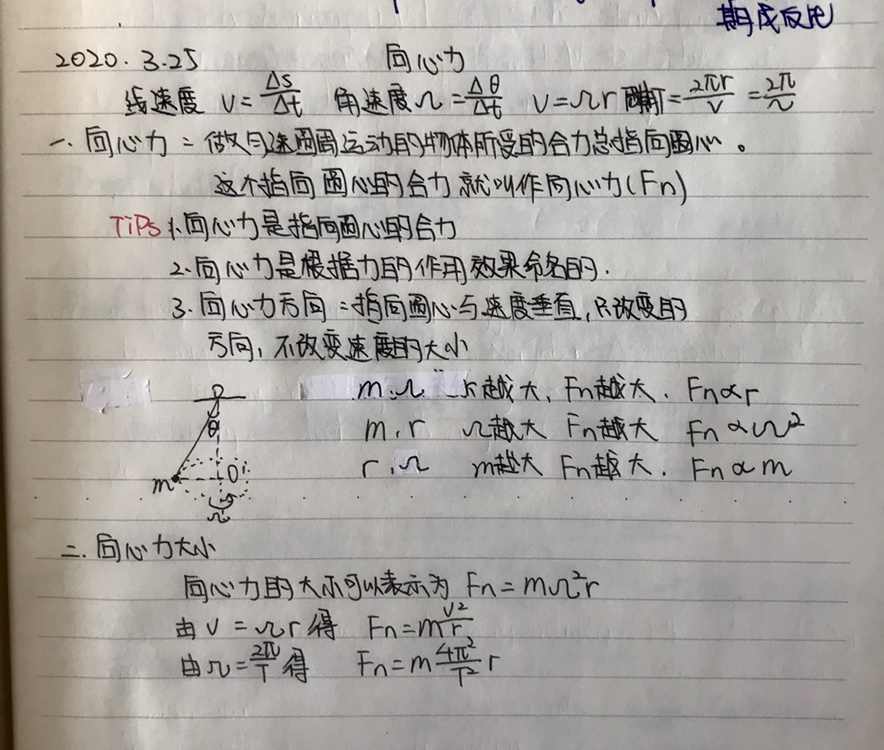 期成反比
2020.3.25 向心力
线速度 V=Δs/Δt 角速度ω=Δθ/Δt V=ωr T=2πr/V=2π/ω
一、向心力:做匀速圆周运动的物体所受的合力总指向圆心。
这个指向圆心的合力就叫作向心力(Fn)
TiPs 1.向心力是指向圆心的合力
2.向心力是根据力的作用效果命名的.
3.向心力方向:指向圆心与速度垂直,只改变的
方向,不改变速度的大小
m.ω r越大,Fn越大. Fn∝r
m.r ω越大 Fn越大 Fn∝ω²
r.ω m越大 Fn越大. Fn∝m
θ
m O'
ω
二.向心力大小
向心力的大小可以表示为 Fn=mω²r
由V=ωr得 Fn=mV²/r
由ω=2π/T得 Fn=m4π²/T² r